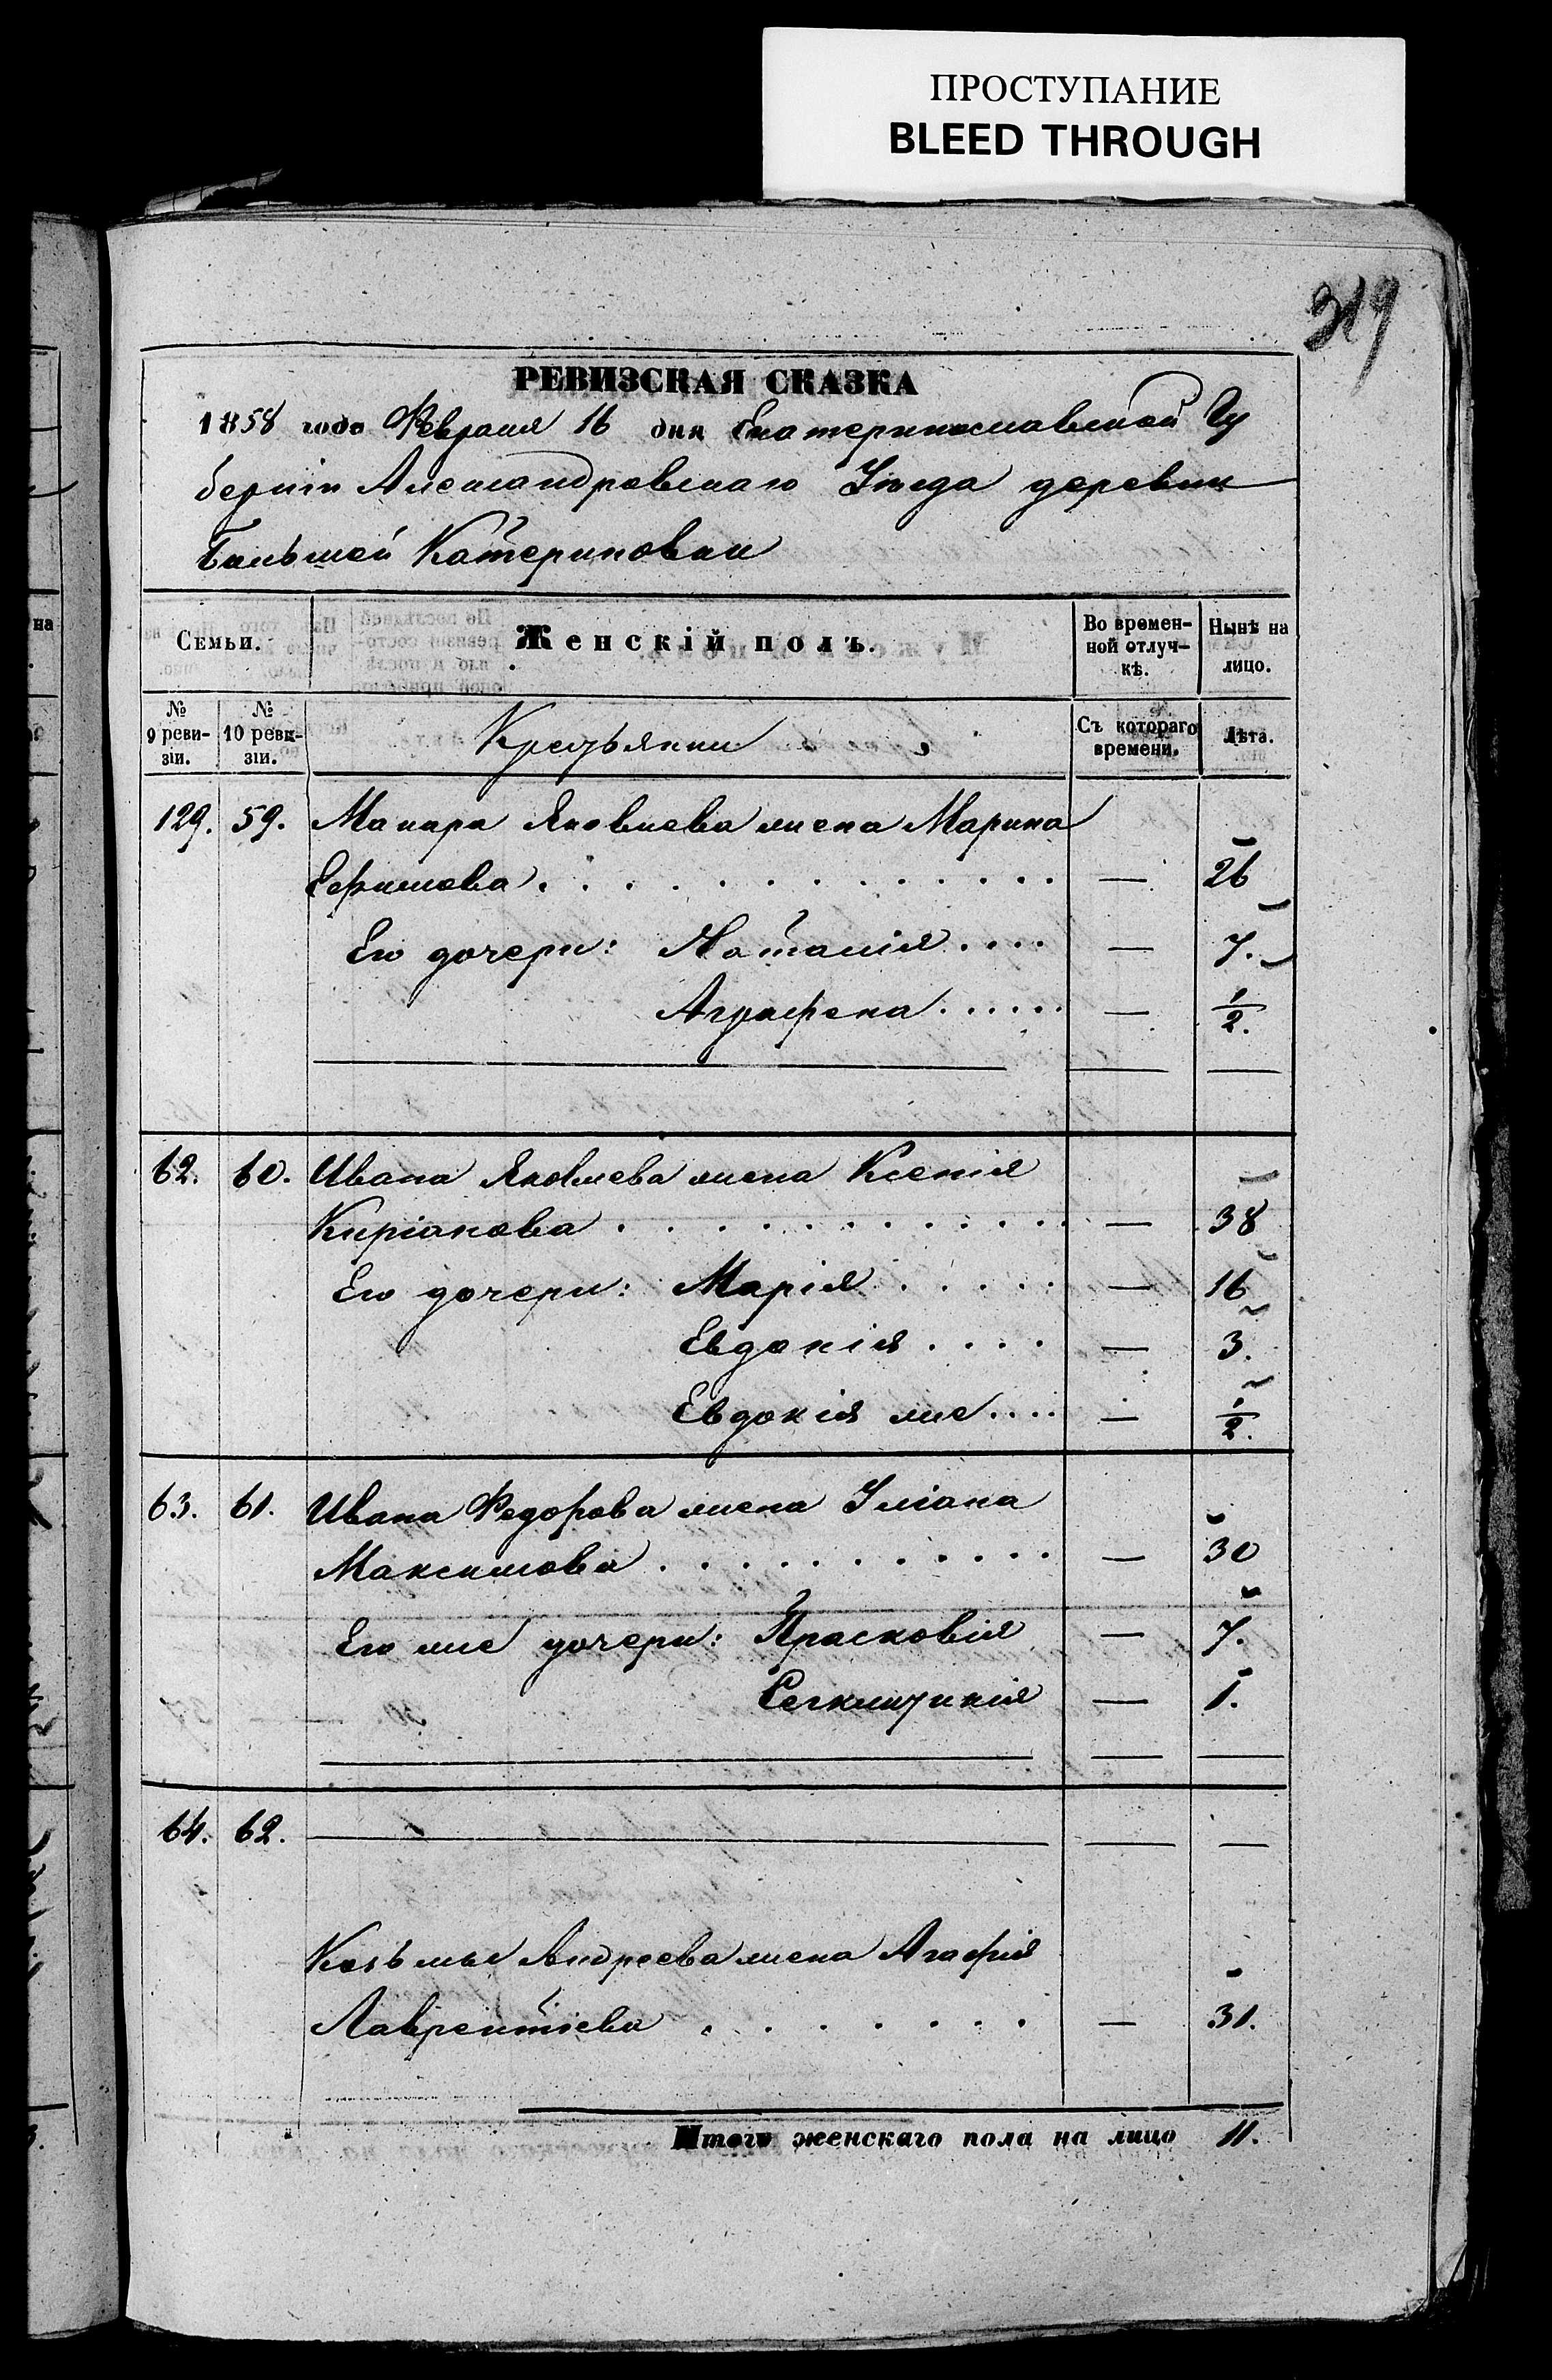 ПРОСТУПАНИЕ
BLEED THROUGH
319
РЕВИЗСКАЯ СКАЗКА
1858 года Февраля 16 дня Екатеринославской Гу
берніи Александровскаго Уѣзда деревни
Большой Катериновки
Семьи. Женскій полъ. Во времен-ной отлуч-кѣ. Нынѣ на лицо.
№ 9 реви-зіи. № 10 реви-зіи. Крестьянки Съ котораго времени. Лѣта.
129. 59. Макара Яковлева жена Марина
Ефимова . . . . . . . . . . . . — 26
Его дочери: Наталія . . . . — 7.
Аграфена . . . . . . — 1/2.
62. 60. Ивана Яковлева жена Ксенія
Киріакова . . . . . . . . . . . . — 38
Его дочери: Марія . . . . . — 16
Евдокія . . . . — 3.
Евдокія же . . . . — 1/2.
63. 61. Ивана Федорова жена Уліана
Максимова . . . . . . . . . . . — 30
Его же дочери: Прасковія — 7.
— 1.
64. 62. — — —
Козьмы Андреева жена Агафія
Лаврентіева . . . . . . . — 31.
Итого женскаго пола на лицо 11.